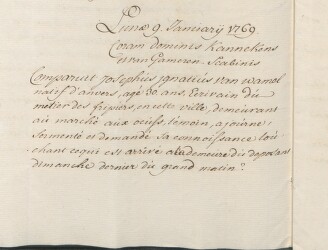 Lunæ 9. Januarÿ 1769
Coram dominis Kannekens
et van Gameren Scabinis
Comparuit Josephus ignatius van wamel
natif d'anvers, agé 30 ans, Ecrivain du
metier des fripiers, en cette ville, demeurant
au marché aux oeufs, temoin, a journé
Sermenté et demandé Sa connoissance tou
chant ce qui est arrivé a la demeure du deposant
dimanche dernier du grand matin